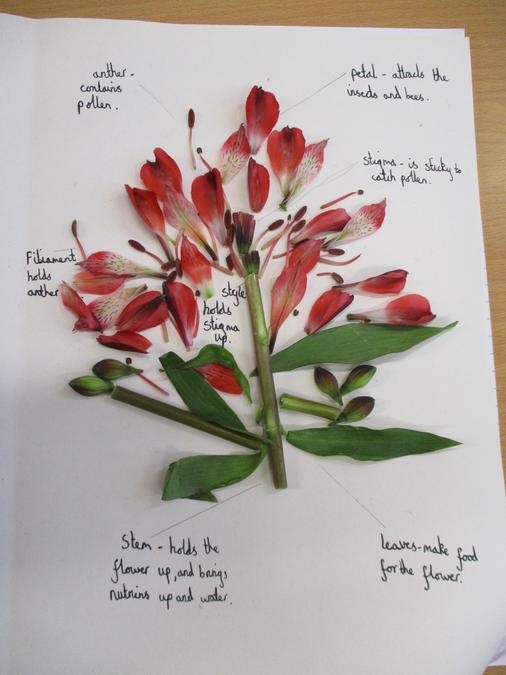 anther -
contains
pollen.
petal - attracts the
insects and bees.
stigma - is sticky to
catch pollen.
Filiament
holds
anther
style
holds
stigma
up.
Stem - holds the
flower up, and brings
nutrins up and water.
leaves - make food
for the flower.